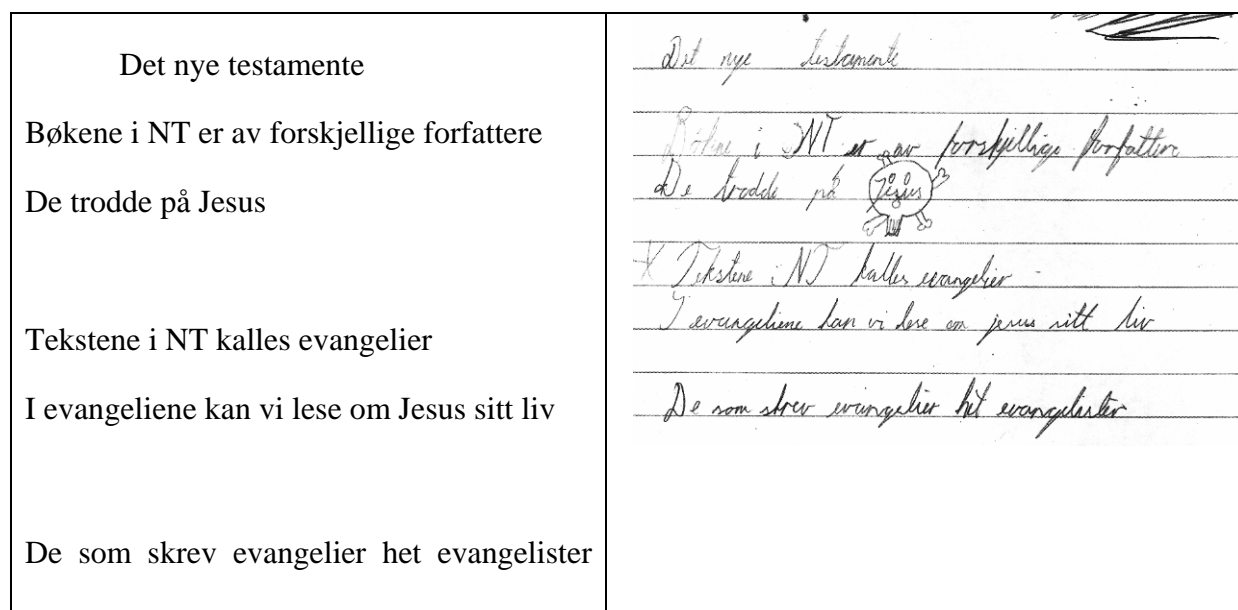 Det nye testamente
Bøkene i NT er av forskjellige forfattere
De trodde på Jesus
Tekstene i NT kalles evangelier
I evangeliene kan vi lese om Jesus sitt liv
De som skrev evangelier het evangelister
Det nye testamente
Bøkene i NT er av forskjellige forfattere
De trodde på Jesus
Tekstene i NT kalles evangelier
I evangeliene kan vi lese om jesus sitt liv
De som skrev evangelier het evangelister